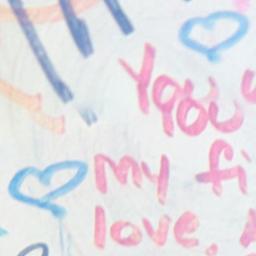 You
my fi
love.